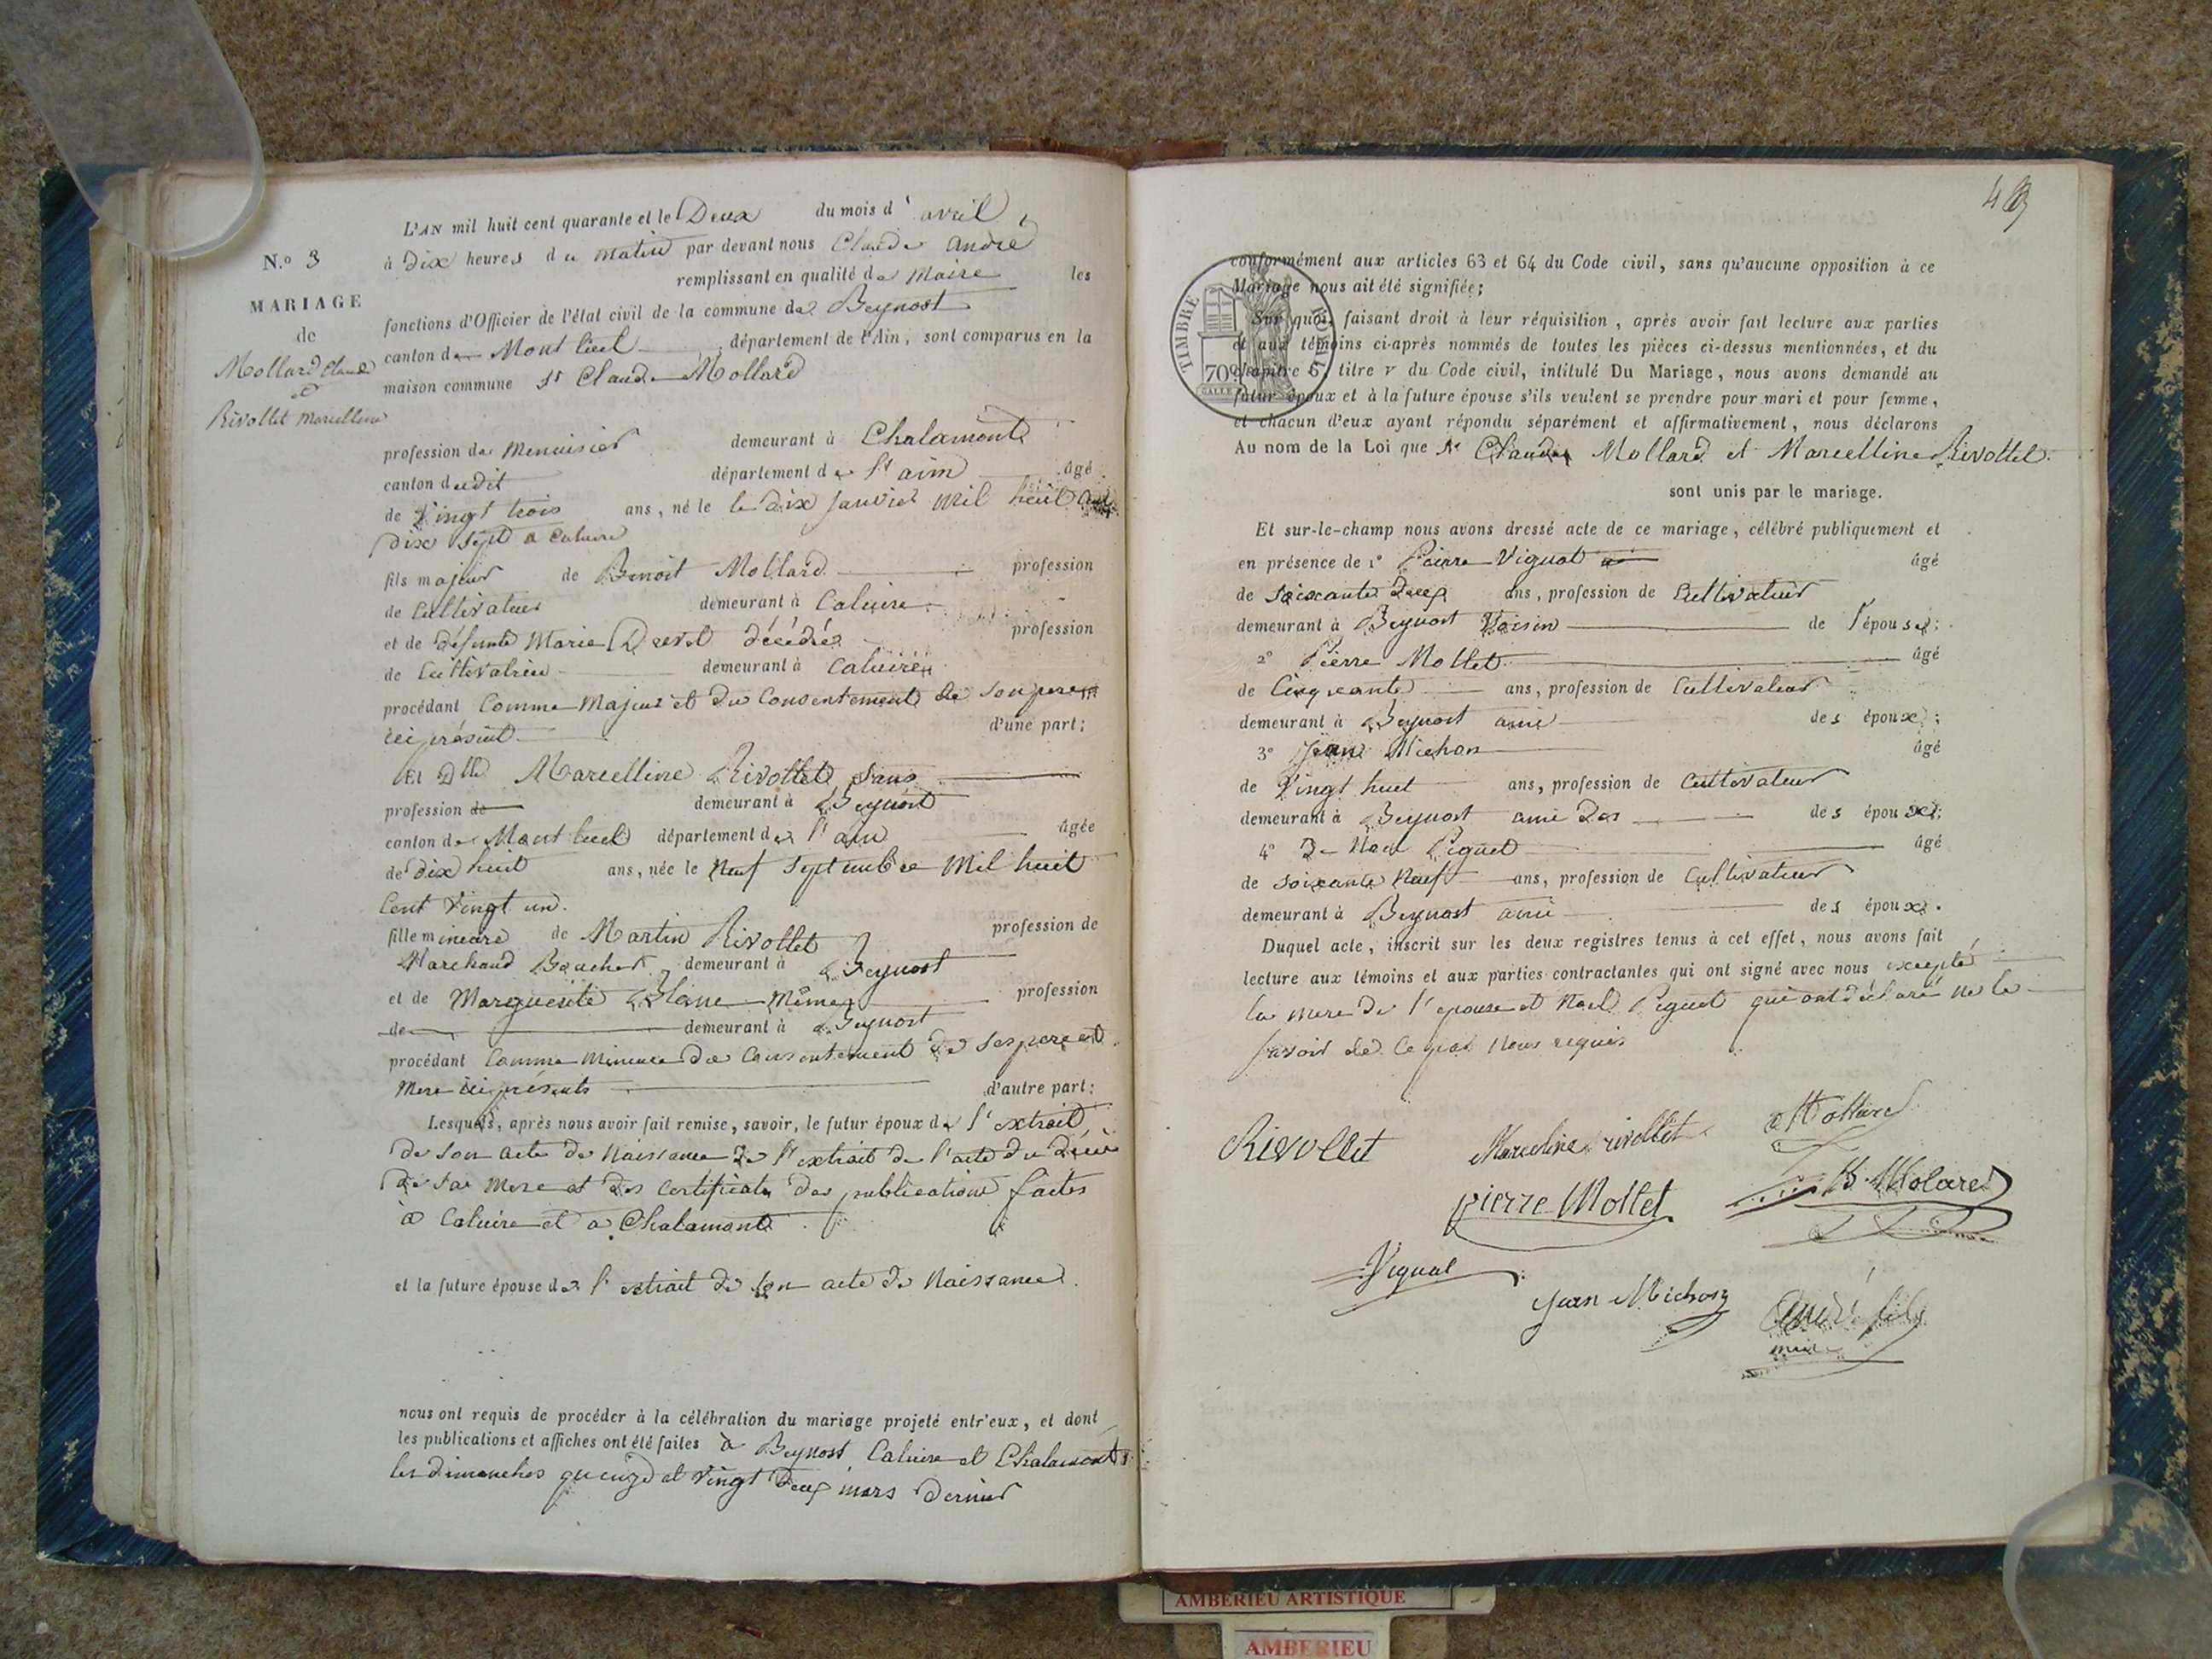 L'AN mil huit cent quarante et le Deux du mois d' avril
N.° 3
à Dix heures du matin par devant nous Claude André
remplissant en qualité de Maire les
MARIAGE
fonctions d'Officier de l'état civil de la commune de Beynost
de
canton de Mont luel département de l'Ain, sont comparus en la
Mollard Claude
maison commune Sr Claude Mollard
et
Rivollet Marcelline
profession de Menuisier demeurant à Chalamont
canton dudit département de l'ain âgé
de Vingt trois ans, né le le dix Janvier mil huit cent
dix sept a Caluire
fils majeur de Benoit Mollard profession
de Cultivateur demeurant à Caluire
et de défunte Marie Drevet décédée profession
de Cultivatrice demeurant à Caluire
procédant Comme Majeur et du Consentement de son pere
ici présent d'une part;
Et Dlle Marcelline Rivollet sans
profession de demeurant à Beynost
canton de Mont luel département de l'ain âgée
de Dix huit ans, née le Neuf Septembre Mil huit
Cent Vingt un.
fille mineure de Martin Rivollet profession de
Marchand Boucher demeurant à Beynost
et de Marguerite Blanc même profession
de demeurant à Beynost
procédant Comme Mineure du Consentement de ses pere et
Mere ici présents d'autre part;
Lesquels, après nous avoir fait remise, savoir, le futur époux de l'extrait
de son acte de Naissance de l'extrait de l'acte du Décès
de sa Mere et des certificats des publications faites
à Caluire et a Chalamont
et la future épouse de l'extrait de son acte de Naissance.
nous ont requis de procéder à la célébration du mariage projeté entr'eux, et dont
les publications et affiches ont été faites à Beynost, Caluire et Chalamont
les dimanches quinze et Vingt Deux mars dernier
conformément aux articles 63 et 64 du Code civil, sans qu'aucune opposition à ce
Mariage nous ait été signifiée;
TIMBRE ROYAL
70c
Sur quoi, faisant droit à leur réquisition, après avoir fait lecture aux parties
et aux témoins ci-après nommés de toutes les pièces ci-dessus mentionnées, et du
chapitre 6, titre v du Code civil, intitulé Du Mariage, nous avons demandé au
futur époux et à la future épouse s'ils veulent se prendre pour mari et pour femme,
et chacun d'eux ayant répondu séparément et affirmativement, nous déclarons
Au nom de la Loi que Sr Claude Mollard et Marcelline Rivollet.
sont unis par le mariage.
Et sur-le-champ nous avons dressé acte de ce mariage, célébré publiquement et
en présence de 1° Pierre Vignat âgé
de Soixante Deux ans, profession de Cultivateur
demeurant à Beynost Voisin de l'épouse;
2° Pierre Mollet âgé
de Cinquante ans, profession de Cultivateur
demeurant à Beynost ami des époux;
3° Jean Michon âgé
de Vingt huit ans, profession de Cultivateur
demeurant à Beynost ami des des époux;
4° Noel Piquet âgé
de soixante Neuf ans, profession de Cultivateur
demeurant à Beynost ami des époux.
Duquel acte, inscrit sur les deux registres tenus à cet effet, nous avons fait
lecture aux témoins et aux parties contractantes qui ont signé avec nous excepté
la mere de l'epouse et Noel Piquet qui ont déclaré ne le
savoir de ce par Nous requis
Rivollet Marceline rivollet Mollard
pierre Mollet B. Molard
Vignat
Jean Michon André fils
maire
AMBERIEU ARTISTIQUE
AMBERIEU